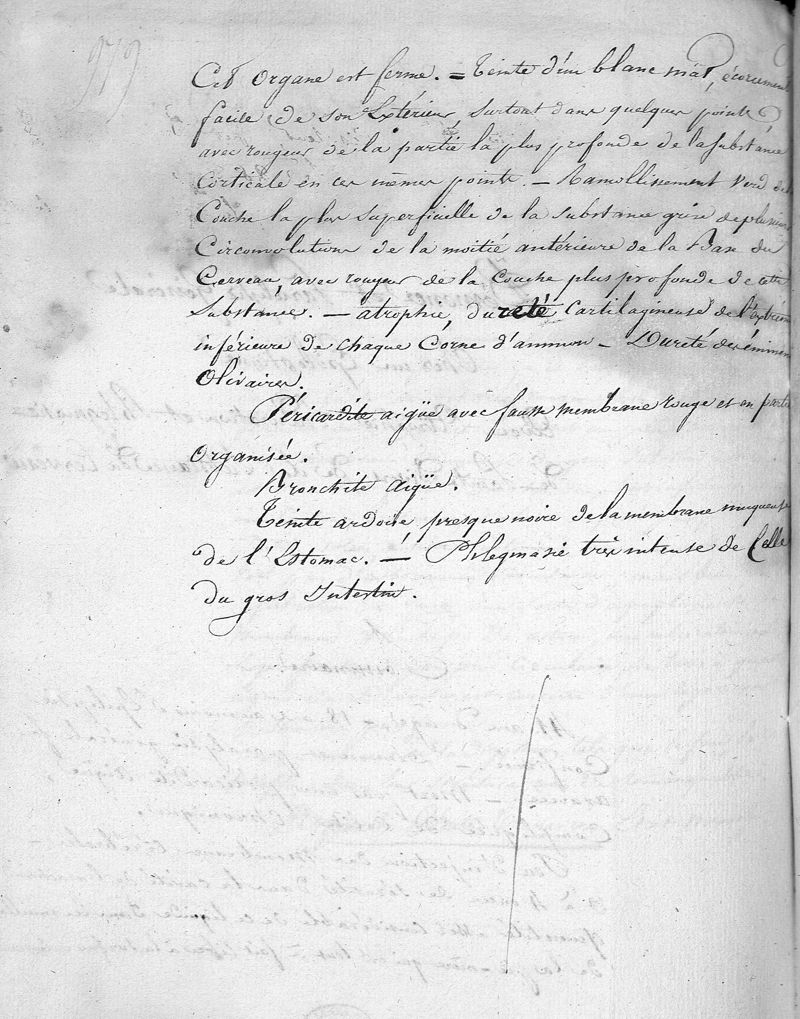 979
Cet organe est ferme. = Teinte d'un blanc mat, écorcement
facile de son Extérieur, surtout dans quelques points,
avec rougeur de la partie la plus profonde de la substance
Corticale en ces mêmes points. — Ramollissement verd de
Couche la plus superficielle de la substance grise de plusieurs
Circonvolutions de la moitié antérieure de la Base du
Cerveau, avec rougeur de la couche plus profonde de cette
Substance. — atrophie, dureté cartilagineuse de l'extrém
inférieure de chaque Corne d'ammon — Dureté des éminen
Olivaires.
Péricardite aigüe avec fausse membrane rouge et en partie
organisée.
Bronchite aigüe.
Teinte ardoise presque noire de la membrane muqueuse
de l'Estomac. — Phlegmasie très intense de Celle
du gros Intestin.